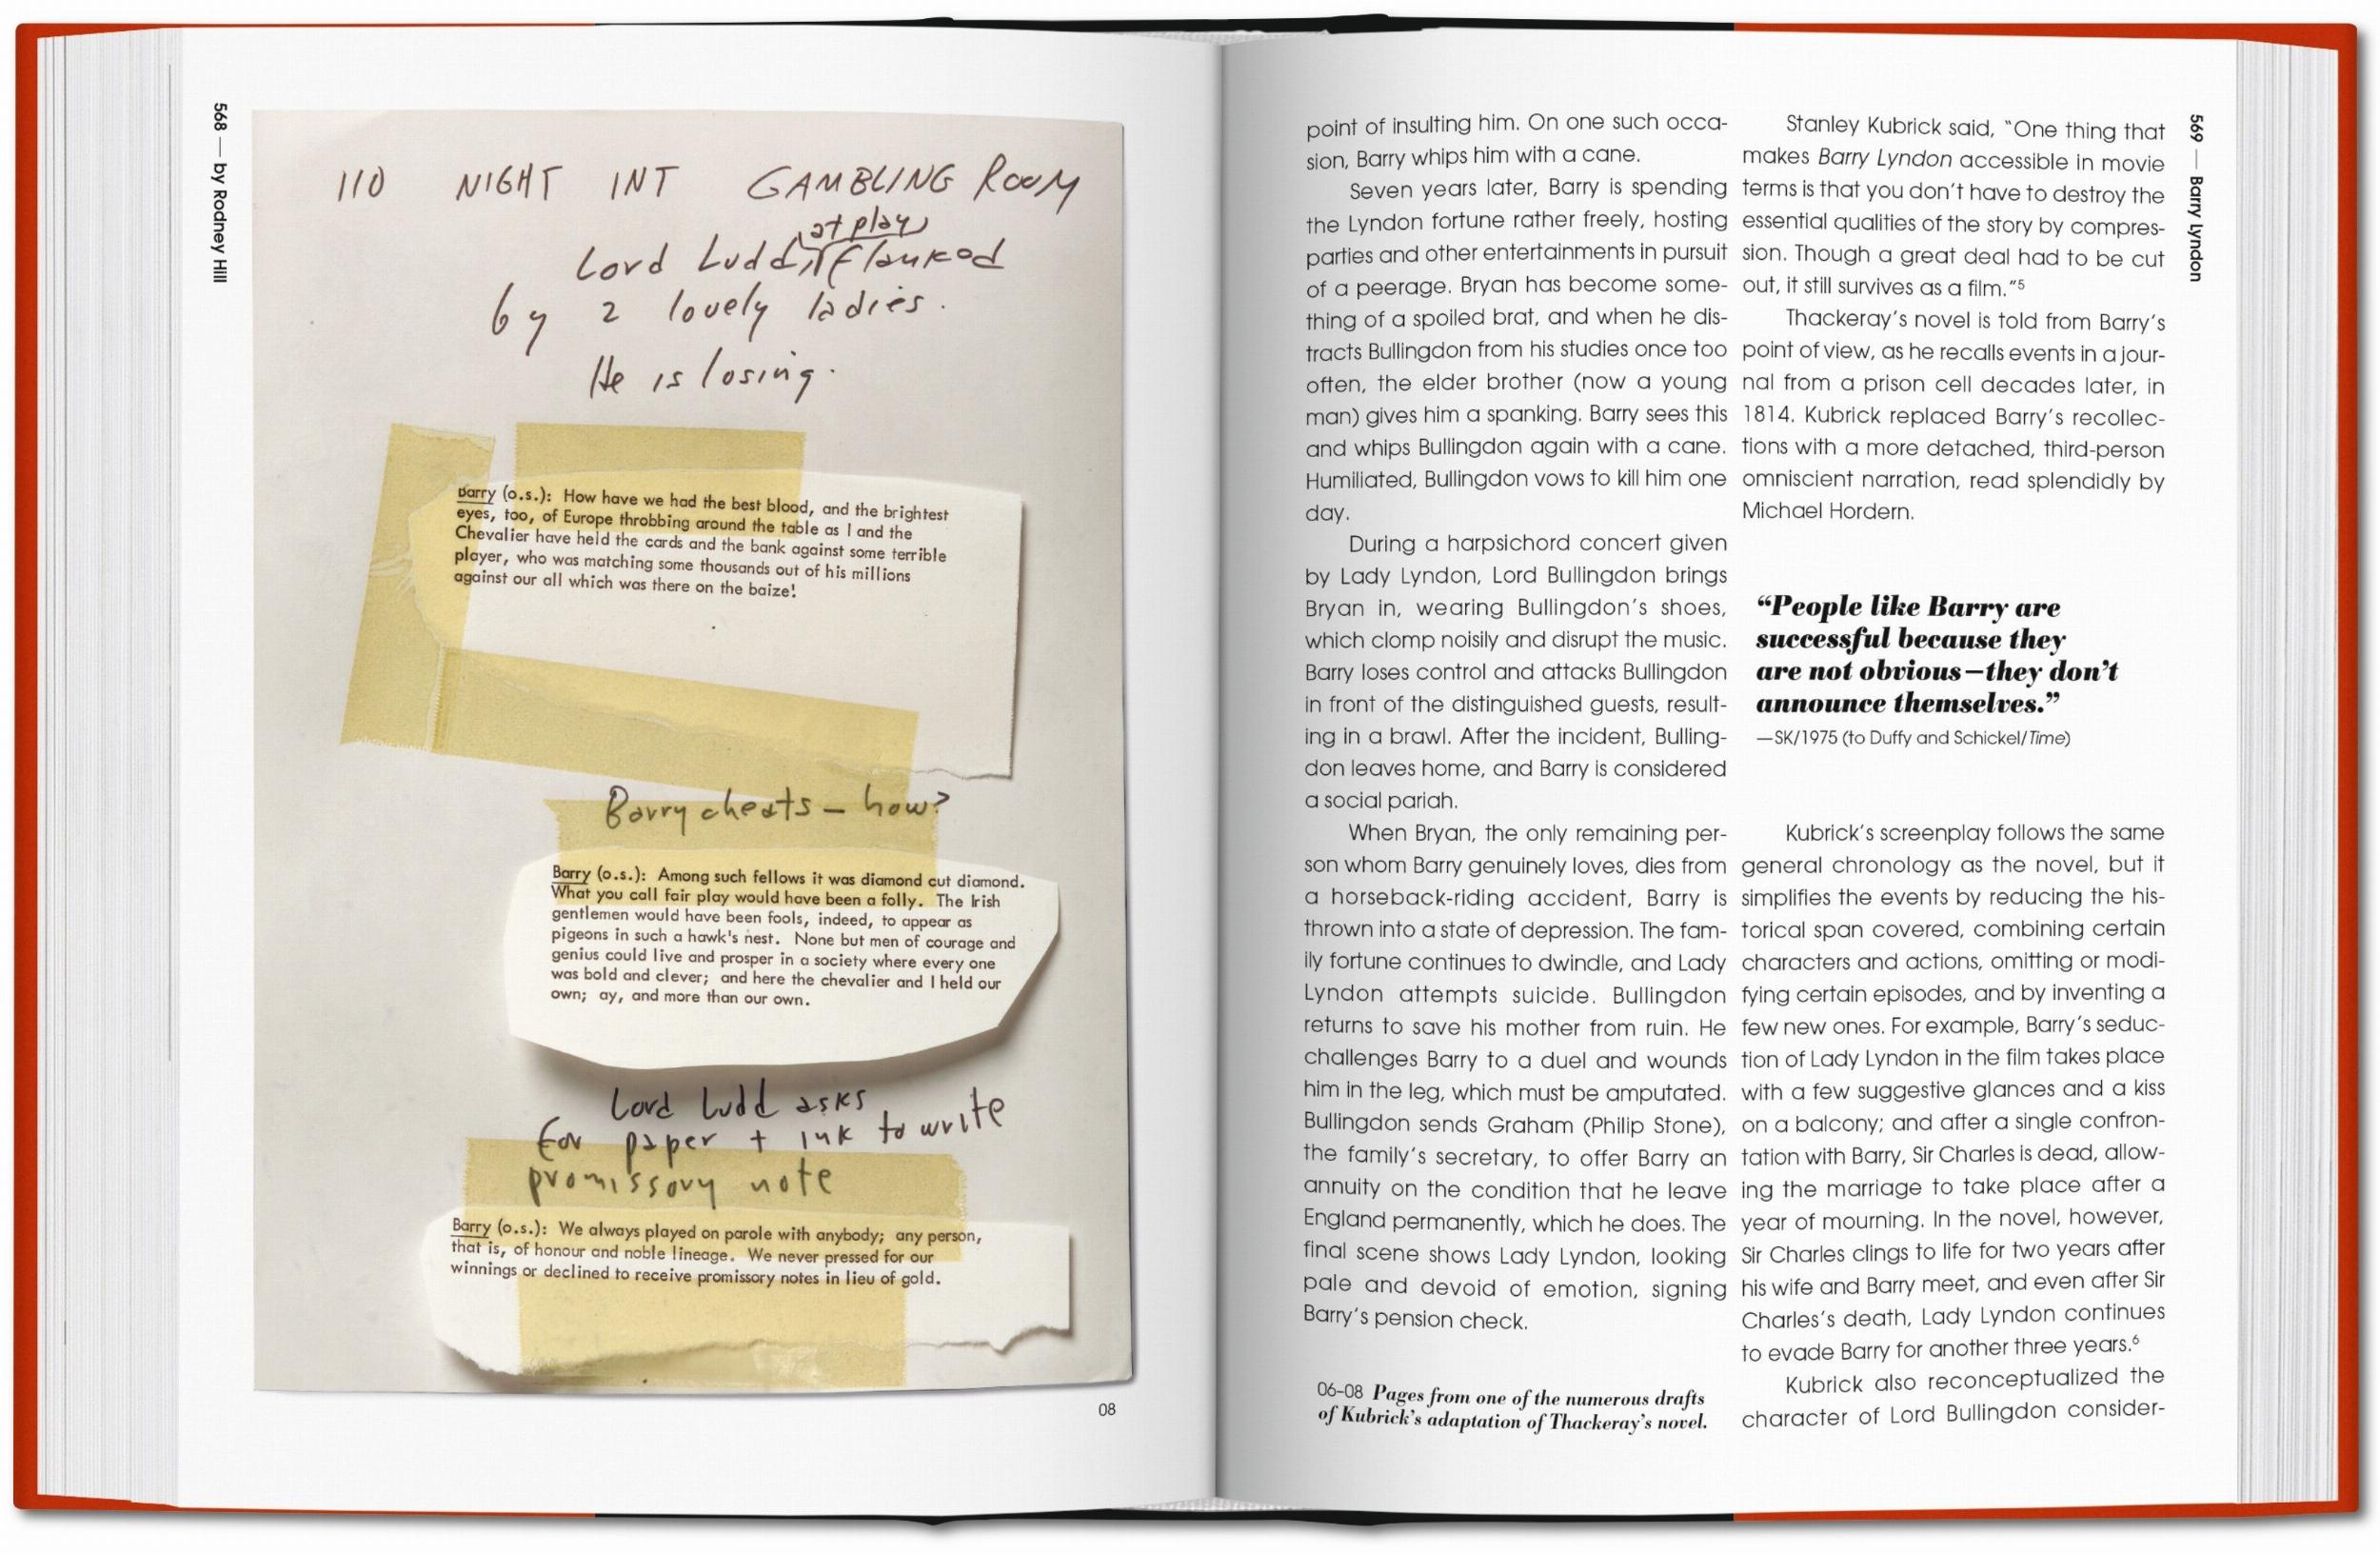 568 — by Rodney Hill
110 NIGHT INT GAMBLING ROOM
at play
Lord Ludd, flanked
by 2 lovely ladies.
He is losing.
Barry (o.s.): How have we had the best blood, and the brightest
eyes, too, of Europe throbbing around the table as I and the
Chevalier have held the cards and the bank against some terrible
player, who was matching some thousands out of his millions
against our all which was there on the baize!
Barry cheats — how?
Barry (o.s.): Among such fellows it was diamond cut diamond.
What you call fair play would have been a folly. The Irish
gentlemen would have been fools, indeed, to appear as
pigeons in such a hawk's nest. None but men of courage and
genius could live and prosper in a society where every one
was bold and clever; and here the chevalier and I held our
own; ay, and more than our own.
Lord Ludd asks
for paper + ink to write
promissory note
Barry (o.s.): We always played on parole with anybody; any person,
that is, of honour and noble lineage. We never pressed for our
winnings or declined to receive promissory notes in lieu of gold.
08
point of insulting him. On one such occa-
sion, Barry whips him with a cane.
Seven years later, Barry is spending
the Lyndon fortune rather freely, hosting
parties and other entertainments in pursuit
of a peerage. Bryan has become some-
thing of a spoiled brat, and when he dis-
tracts Bullingdon from his studies once too
often, the elder brother (now a young
man) gives him a spanking. Barry sees this
and whips Bullingdon again with a cane.
Humiliated, Bullingdon vows to kill him one
day.
During a harpsichord concert given
by Lady Lyndon, Lord Bullingdon brings
Bryan in, wearing Bullingdon's shoes,
which clomp noisily and disrupt the music.
Barry loses control and attacks Bullingdon
in front of the distinguished guests, result-
ing in a brawl. After the incident, Bulling-
don leaves home, and Barry is considered
a social pariah.
When Bryan, the only remaining per-
son whom Barry genuinely loves, dies from
a horseback-riding accident, Barry is
thrown into a state of depression. The fam-
ily fortune continues to dwindle, and Lady
Lyndon attempts suicide. Bullingdon
returns to save his mother from ruin. He
challenges Barry to a duel and wounds
him in the leg, which must be amputated.
Bullingdon sends Graham (Philip Stone),
the family's secretary, to offer Barry an
annuity on the condition that he leave
England permanently, which he does. The
final scene shows Lady Lyndon, looking
pale and devoid of emotion, signing
Barry's pension check.
06–08 Pages from one of the numerous drafts
of Kubrick's adaptation of Thackeray's novel.
Stanley Kubrick said, "One thing that
makes Barry Lyndon accessible in movie
terms is that you don't have to destroy the
essential qualities of the story by compres-
sion. Though a great deal had to be cut
out, it still survives as a film."5
Thackeray's novel is told from Barry's
point of view, as he recalls events in a jour-
nal from a prison cell decades later, in
1814. Kubrick replaced Barry's recollec-
tions with a more detached, third-person
omniscient narration, read splendidly by
Michael Hordern.
"People like Barry are
successful because they
are not obvious—they don't
announce themselves."
—SK/1975 (to Duffy and Schickel/Time)
Kubrick's screenplay follows the same
general chronology as the novel, but it
simplifies the events by reducing the his-
torical span covered, combining certain
characters and actions, omitting or modi-
fying certain episodes, and by inventing a
few new ones. For example, Barry's seduc-
tion of Lady Lyndon in the film takes place
with a few suggestive glances and a kiss
on a balcony; and after a single confron-
tation with Barry, Sir Charles is dead, allow-
ing the marriage to take place after a
year of mourning. In the novel, however,
Sir Charles clings to life for two years after
his wife and Barry meet, and even after Sir
Charles's death, Lady Lyndon continues
to evade Barry for another three years.6
Kubrick also reconceptualized the
character of Lord Bullingdon consider-
569 — Barry Lyndon